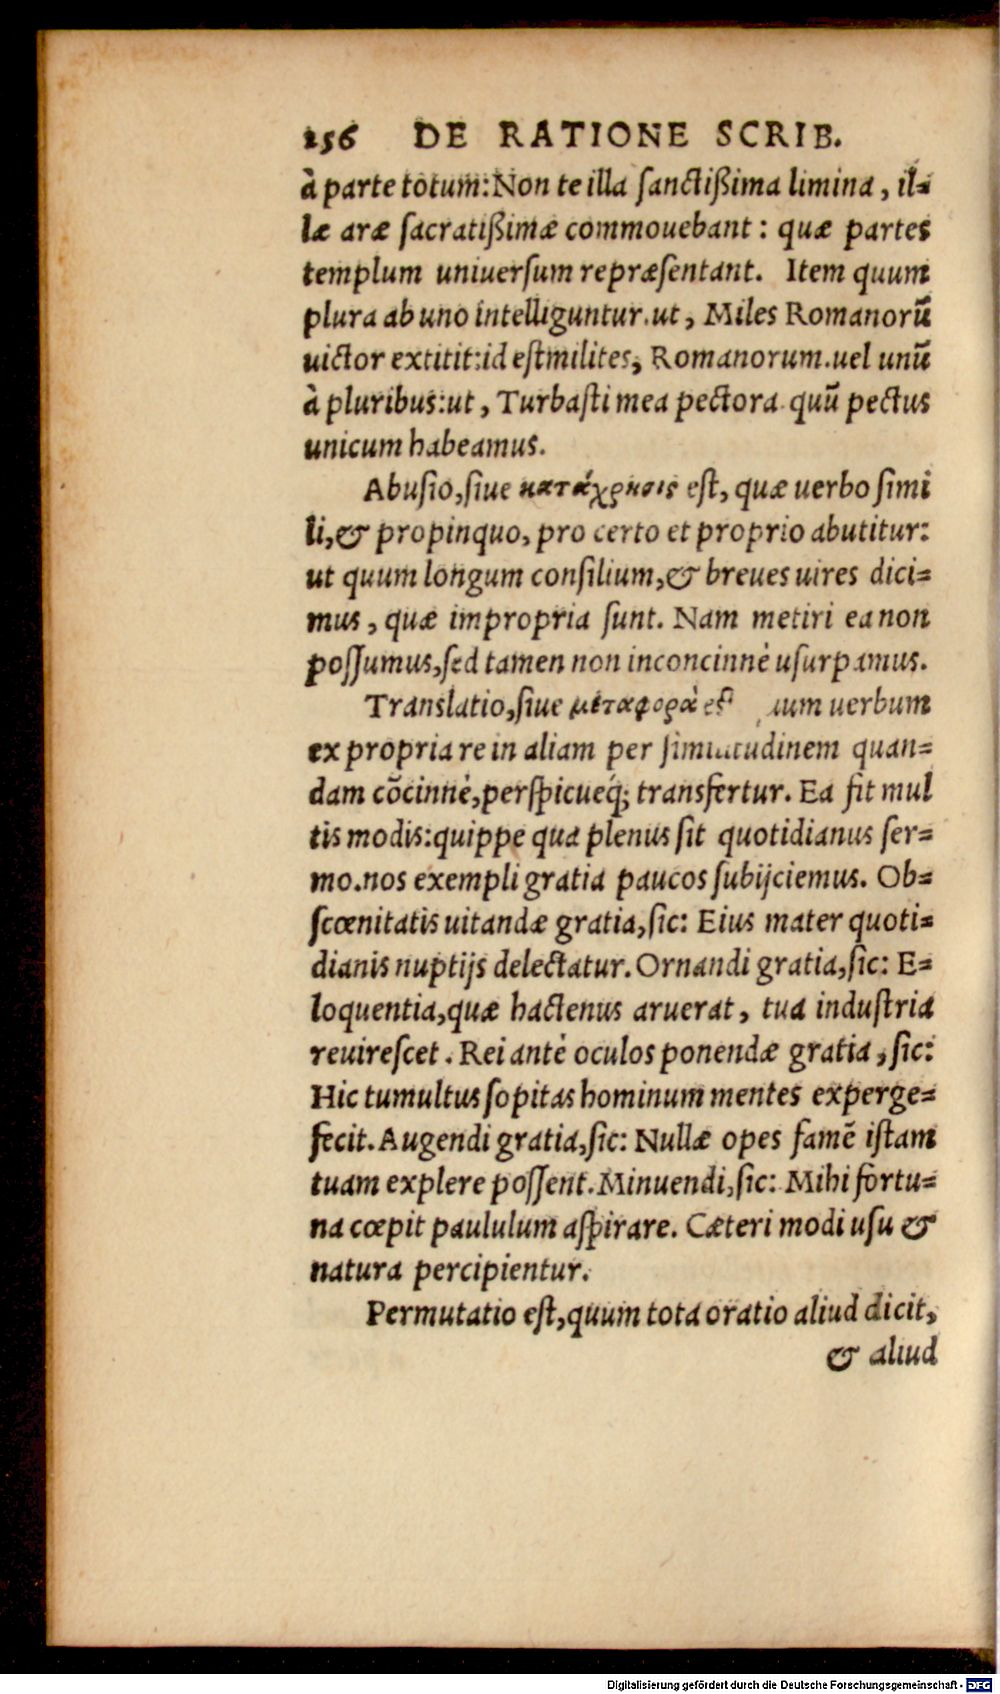 256 DE RATIONE SCRIB.
à parte totum: Non te illa sanctißima limina, il=
læ aræ sacratißimæ commouebant: quæ partes
templum uniuersum repræsentant. Item quum
plura ab uno intelliguntur. ut, Miles Romanorū
uictor extitit: id est milites, Romanorum. uel unū
à pluribus: ut, Turbasti mea pectora. quū pectus
unicum habeamus.
Abusio, siue κατάχρησις est, quæ uerbo simi
li, & propinquo, pro certo et proprio abutitur:
ut quum longum consilium, & breues uires dici=
mus, quæ impropria sunt. Nam metiri ea non
possumus, sed tamen non inconcinnè usurpamus.
Translatio, siue μεταφορὰ est uum uerbum
ex propria re in aliam per similitudinem quan=
dam cōcinnè, perspicueq́; transfertur. Ea fit mul
tis modis: quippe qua plenus sit quotidianus ser=
mo. nos exempli gratia paucos subijciemus. Ob=
scœnitatis uitandæ gratia, sic: Eius mater quoti=
dianis nuptijs delectatur. Ornandi gratia, sic: E=
loquentia, quæ hactenus aruerat, tua industria
reuirescet. Rei antè oculos ponendæ gratia, sic:
Hic tumultus sopitas hominum mentes experge=
fecit. Augendi gratia, sic: Nullæ opes famē istam
tuam explere possent. Minuendi, sic: Mihi fortu=
na cœpit paululum aspirare. Cæteri modi usu &
natura percipientur.
Permutatio est, quum tota oratio aliud dicit,
& aliud
Digitalisierung gefördert durch die Deutsche Forschungsgemeinschaft - DFG